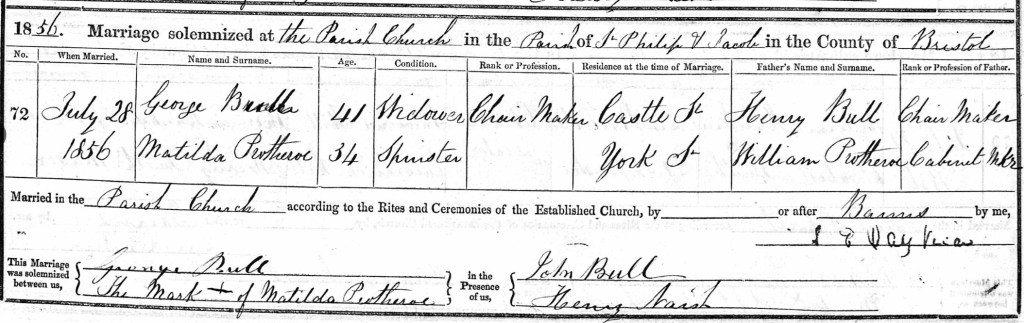 1856. Marriage solemnized at the Parish Church in the Parish of St Philip & Jacob in the County of Bristol
No. When Married. Name and Surname. Age. Condition. Rank or Profession. Residence at the time of Marriage. Father's Name and Surname. Rank or Profession of Father.
72 July 28 George Bull 41 Widower Chair Maker Castle St Henry Bull Chair Maker
1856 Matilda Protheroe 34 Spinster York St William Protheroe Cabinet Mkr
Married in the Parish Church according to the Rites and Ceremonies of the Established Church, by or after Banns by me,
Vicar
This Marriage was solemnized between us, George Bull In the Presence of us, John Bull
The Mark + of Matilda Protheroe Henry Naish